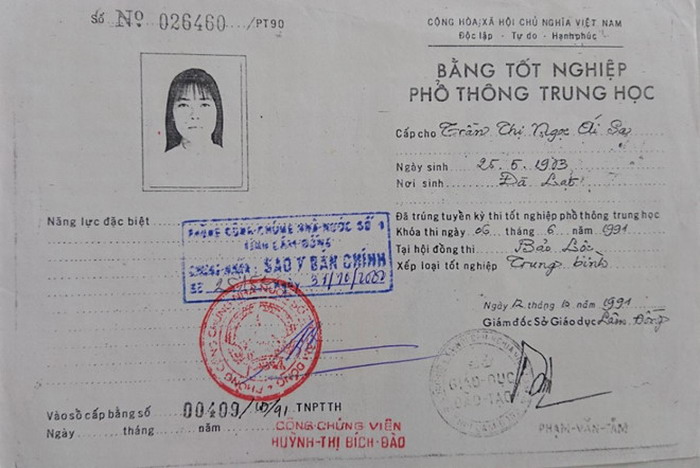 Số Nº 026460 /PT90
CỘNG HÒA XÃ HỘI CHỦ NGHĨA VIỆT NAM
Độc lập - Tự do - Hạnh phúc
BẰNG TỐT NGHIỆP
PHỔ THÔNG TRUNG HỌC
Cấp cho Trần Thị Ngọc Ái Sa
Ngày sinh 25.5.1973
Nơi sinh Đà Lạt
Năng lực đặc biệt
Đã trúng tuyển kỳ thi tốt nghiệp phổ thông trung học
Khóa thi ngày 06 tháng 6 năm 1991
Tại hội đồng thi Bảo Lộc
Xếp loại tốt nghiệp Trung bình
PHÒNG CÔNG CHỨNG NHÀ NƯỚC SỐ 1
TỈNH LÂM ĐỒNG
CHỨNG NHẬN: SAO Y BẢN CHÍNH
SỐ NGÀY 31/10/2002
Ngày 12 tháng 10 năm 1991
Giám đốc Sở Giáo dục Lâm Đồng
SỞ
GIÁO DỤC
ĐÀO TẠO
Vào sổ cấp bằng số 00409 /91 TNPTTH
Ngày tháng năm
CÔNG CHỨNG VIÊN
HUỲNH THỊ BÍCH ĐÀO
PHẠM-VĂN-TẤM